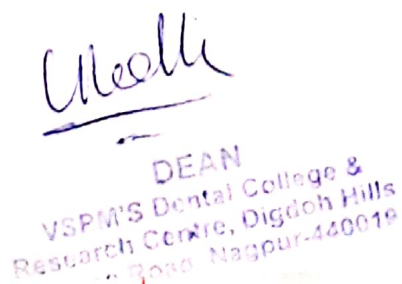 DEAN
VSPM'S Dental College &
Research Centre, Digdoh Hills
Road Nagpur-440019